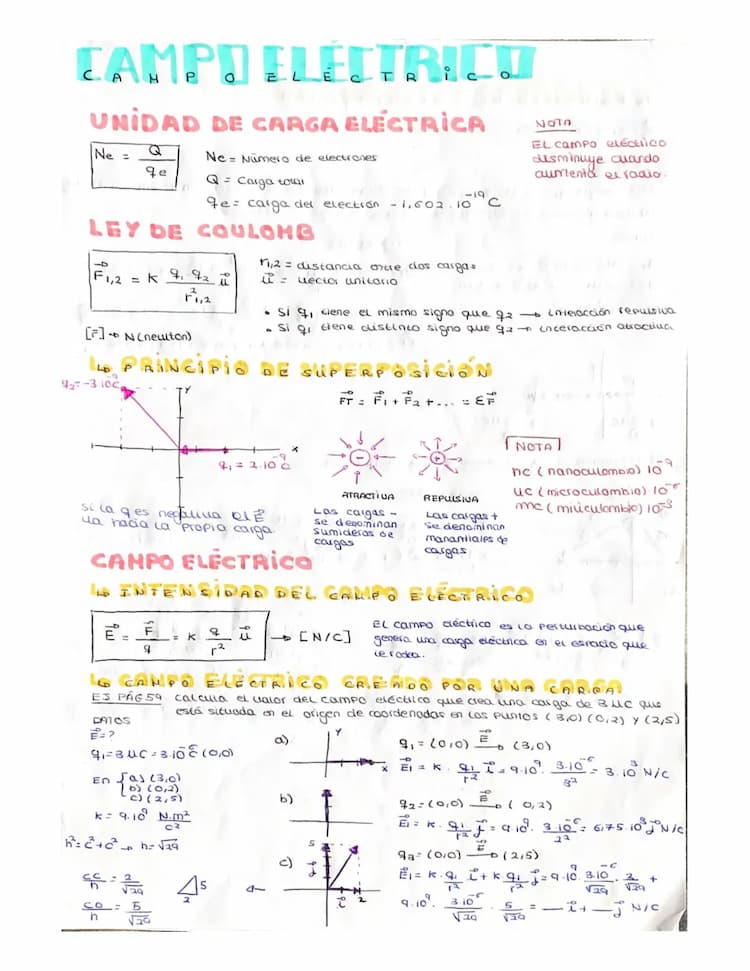 CAMPO ELÉCTRICO
CAMPO ELÉCTRICO
UNIDAD DE CARGA ELÉCTRICA
Ne = Q / qe
Ne = Número de electrones
Q = Carga total
qe = carga del electrón - 1,602 · 10⁻¹⁹ C
NOTA
El campo eléctrico
disminuye cuando
aumenta el radio.
LEY DE COULOMB
F⃗1,2 = K q1 q2 / r²1,2 u⃗
r1,2 = distancia entre dos cargas
u⃗ = vector unitario
• Si q1 tiene el mismo signo que q2 → interacción repulsiva
• Si q1 tiene distinto signo que q2 → interacción atractiva
[F] → N (newton)
↳ PRINCIPIO DE SUPERPOSICIÓN
q2 = -3·10⁻⁹C
y
x
q1 = 2·10⁻⁹C
F⃗T = F⃗1 + F⃗2 + ... = ΣF⃗
-
+
ATRACTIVA
REPULSIVA
NOTA
nc (nanoculombio) 10⁻⁹
uc (microculombio) 10⁻⁶
mc (miliculombio) 10⁻³
Si la q es negativa el E⃗
va hacia la propia carga.
Las cargas -
se denominan
sumideros de
cargas
Las cargas +
se denominan
manantiales de
cargas
CAMPO ELÉCTRICO
↳ INTENSIDAD DEL CAMPO ELÉCTRICO
E⃗ = F⃗ / q = K q / r² u⃗ → [N/C]
El campo eléctrico es la perturbación que
genera una carga eléctrica en el espacio que
le rodea.
↳ CAMPO ELÉCTRICO CREADO POR UNA CARGA
EJ PÁG 59 calcula el valor del campo eléctrico que crea una carga de 3 uc que
está situada en el origen de coordenadas en los puntos (3,0) (0,2) y (2,5)
DATOS
E⃗ = ?
q1 = 3 uc = 3·10⁻⁶C (0,0)
En { a) (3,0)
b) (0,2)
c) (2,5)
K = 9·10⁹ N·m² / c²
h² = c² + c² → h = √29
cc / h = 2 / √29
co / h = 5 / √29
5
2
a)
y
x
q1 = (0,0) E⃗ → (3,0)
E⃗1 = K · q1 / r² i⃗ = 9·10⁹ · 3·10⁻⁶ / 3² = 3·10³ N/C
b)
q2 = (0,0) E⃗ → (0,2)
E⃗1 = K · q1 / r² j⃗ = 9·10⁹ · 3·10⁻⁶ / 2² = 6,75·10³ j⃗ N/C
c)
5
j⃗
i⃗ 2
q3 = (0,0) E⃗ → (2,5)
E⃗1 = K · q1 / r² i⃗ + K q1 / r² j⃗ = 9·10⁹ · 3·10⁻⁶ / √29 · 2 / √29 +
9·10⁹ · 3·10⁻⁶ / √29 · 5 / √29 = — i⃗ + — j⃗ N/C